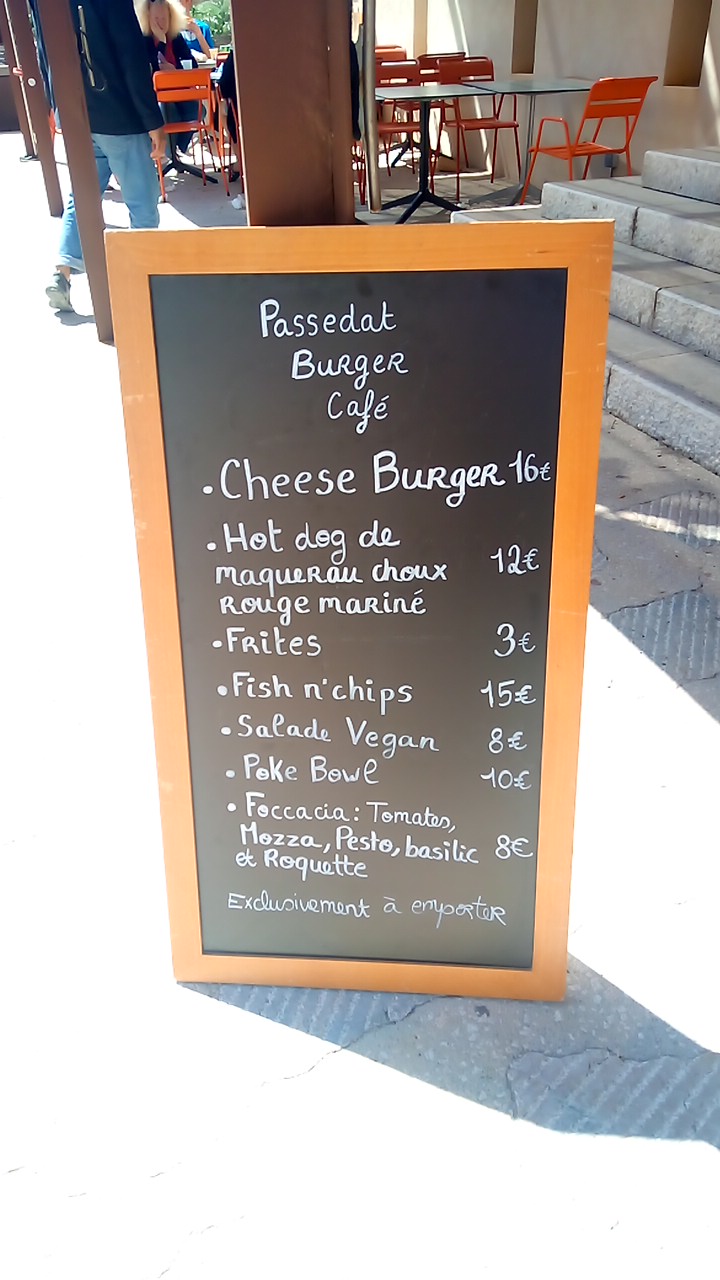 Passedat
Burger
Café
. Cheese Burger 16€
. Hot dog de
maquerau choux 12€
rouge mariné
. Frites 3€
. Fish n'chips 15€
. Salade Vegan 8€
. Poke Bowl 10€
. Foccacia : Tomates,
Mozza, Pesto, basilic 8€
et Roquette
Exclusivement à emporter